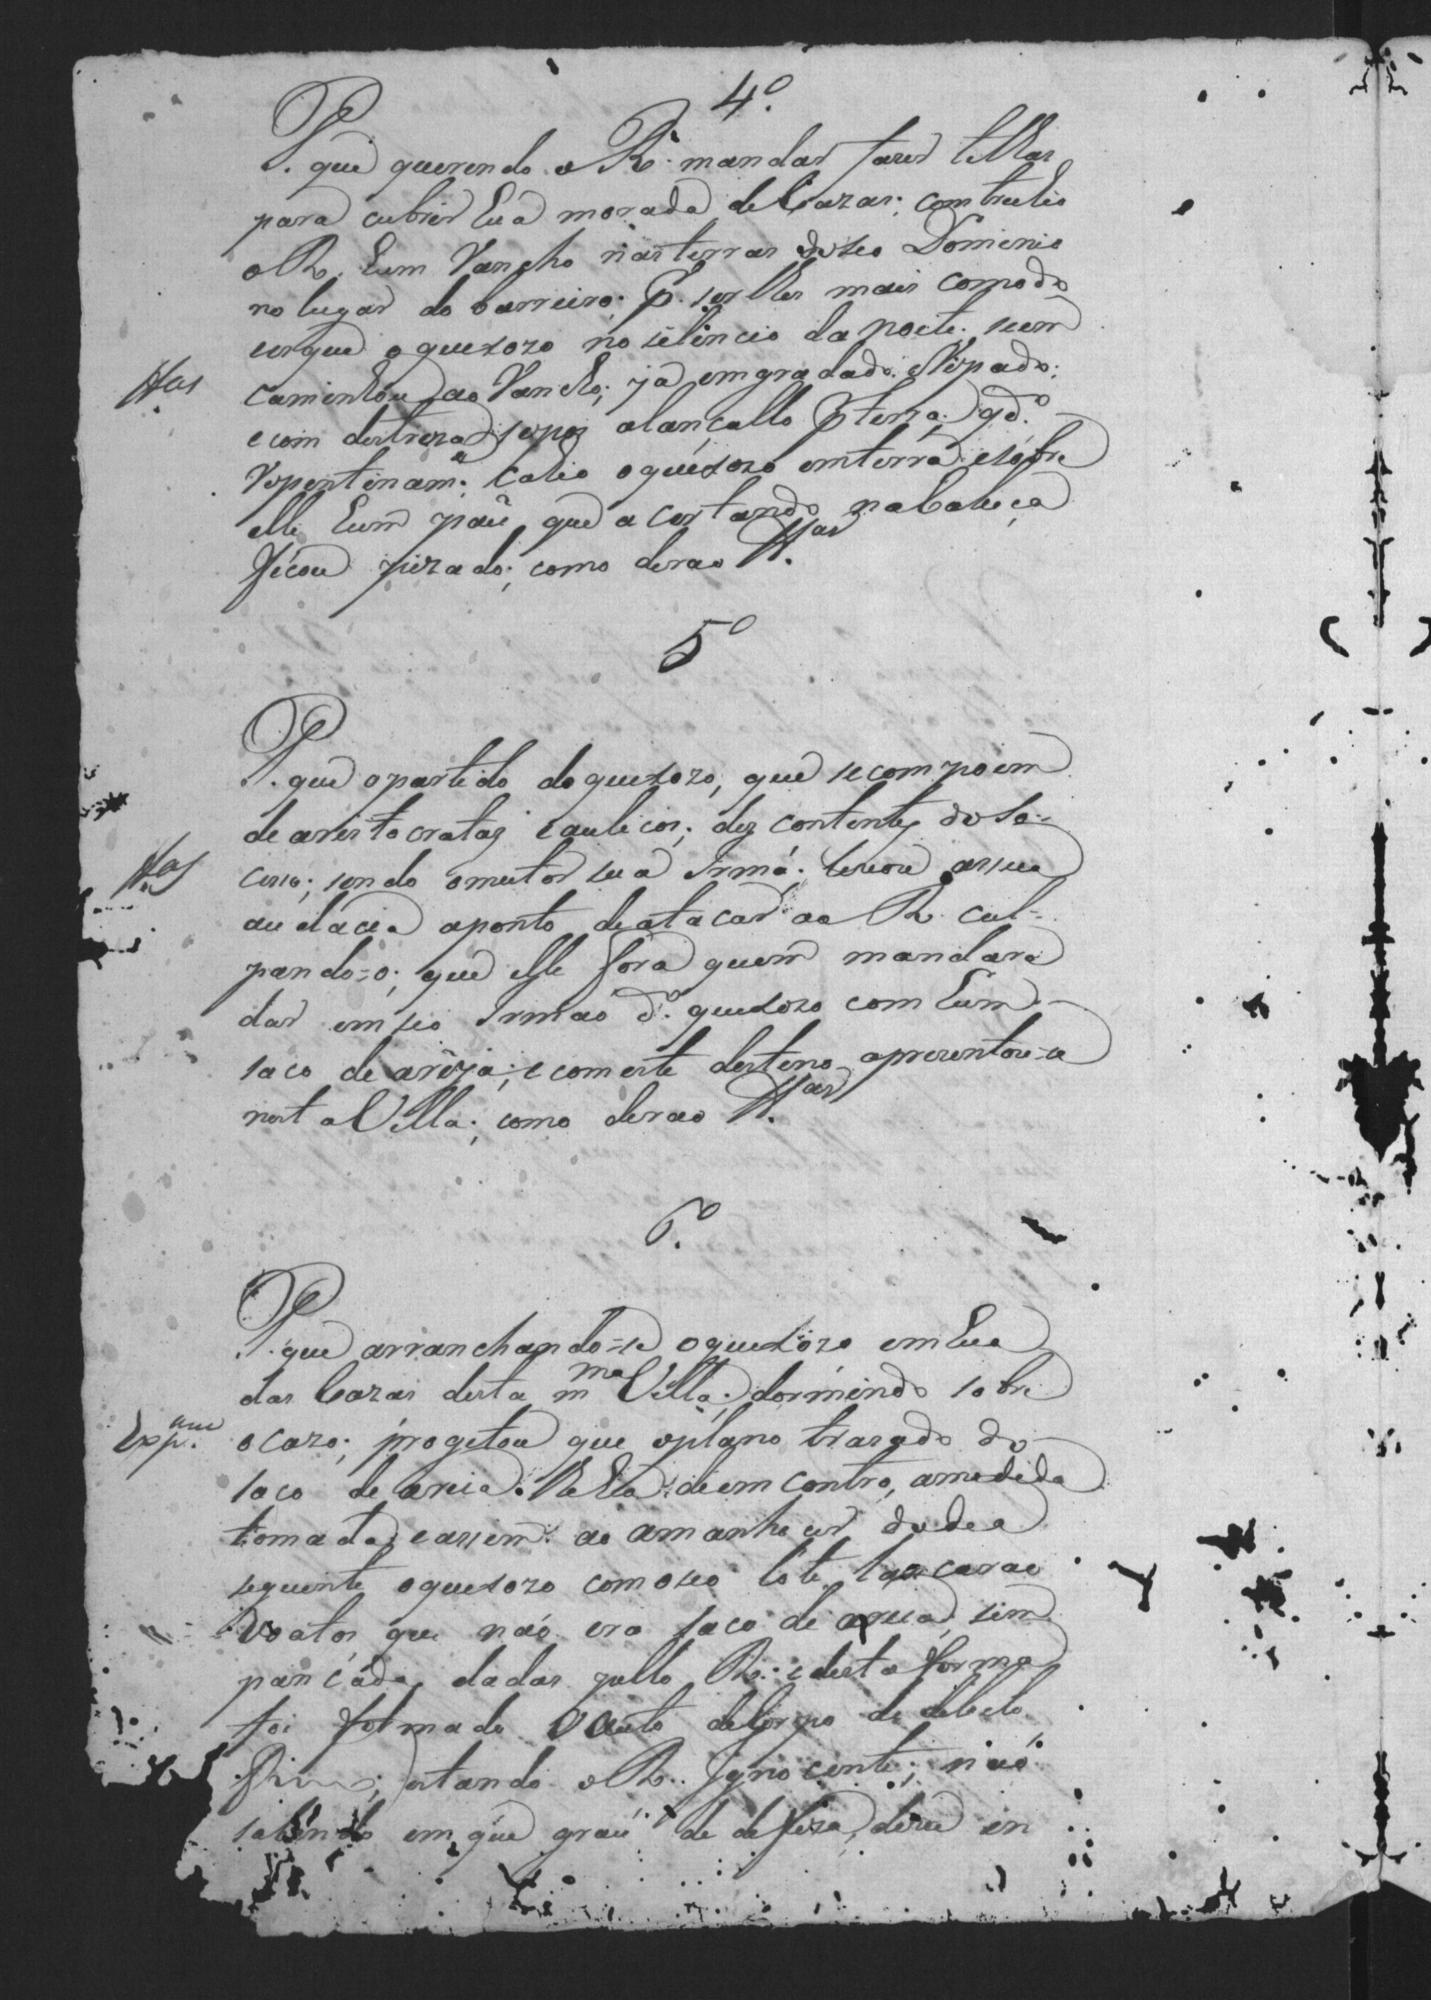 4.º
P. que querendo o R. mandar fazer telhas
para cubrir hũa morada de Cazas; com truhio
o R. hum Rancho nas terras do seo Dominio
no lugar do barreiro; p. ser lhes mais comodo
em que o queixozo no silencio da noite, se em
caminhou ao Rancho; já emgradado, e Ripado;
e com destreza se pos a lançallo p terra; q.do
repentinam.e cahio o queixozo em terra, e sobre
elle hum páu, que acertando na Cabeça
ficou pizado; como dirao tt.as
tt.as
5º
P. que o partido do queixozo, que se compoem
de aristocratas e aulicos; descontentes do su-
cesso; sendo o mutor sua Irmã; levou a sua
audacia a ponto de atacar ao R. cul-
pando-o; que elle fora quem mandara
dar em seo Irmão d.º queixozo com hum
saco de arêja; e com este desteno aprezentou-se
nesta Villa; como dirao tt.as
tt.as
6.º
P. que arranchando-se o queixozo em hua
das Cazas desta m.ma Villa; dormindo sobre
o cazo; progetou que o plano trasado do
saco de areia. hia de emcontro, a medida
tomada; e assim ao amanhecer do dia
seguinte o queixozo com o seo lote lançarao
voatos que não era saco de areia, sim
pancada dadas pello R.; e desta forma
foi formado o Auto de Corpo de delicto
estando o R. Ignocente; não
sabendo em que gráu de defeza, dirie in
Exp.ame